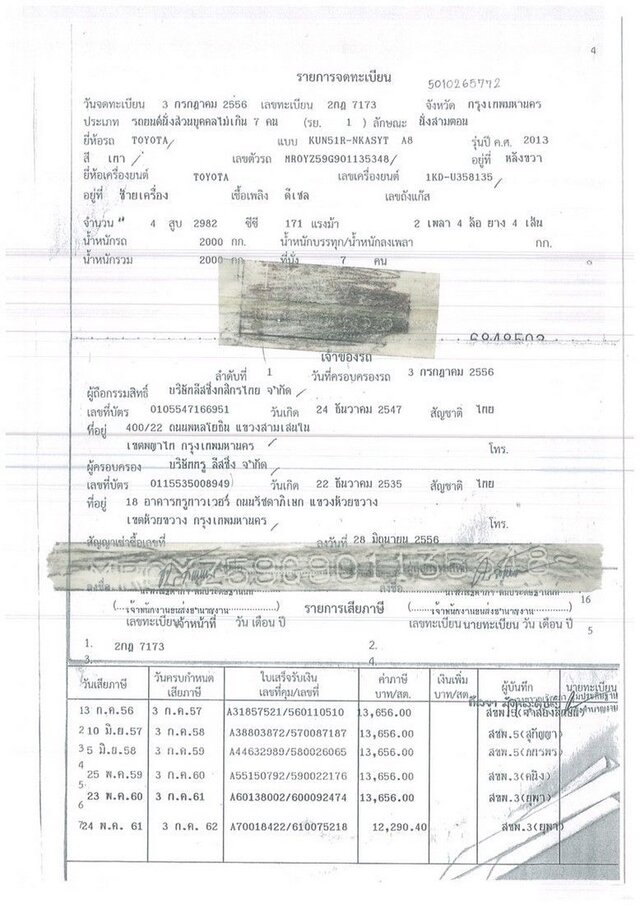 4
รายการจดทะเบียน
5010265772
วันจดทะเบียน 3 กรกฎาคม 2556 เลขทะเบียน 2กฎ 7173 จังหวัด กรุงเทพมหานคร
ประเภท รถยนต์นั่งส่วนบุคคลไม่เกิน 7 คน (รย. 1 ) ลักษณะ นั่งสามตอน
ยี่ห้อรถ TOYOTA แบบ KUN51R-NKASYT A8 รุ่นปี ค.ศ. 2013
สี เทา เลขตัวรถ MR0YZ59G901135348 อยู่ที่ หลังขวา
ยี่ห้อเครื่องยนต์ TOYOTA เลขเครื่องยนต์ 1KD-U358135
อยู่ที่ ซ้ายเครื่อง เชื้อเพลิง ดีเซล เลขถังแก๊ส
จำนวน 4 สูบ 2982 ซีซี 171 แรงม้า 2 เพลา 4 ล้อ ยาง 4 เส้น
น้ำหนักรถ 2000 กก. น้ำหนักบรรทุก/น้ำหนักลงเพลา กก.
น้ำหนักรวม 2000 กก ที่นั่ง 7 คน
6848503
เจ้าของรถ
ลำดับที่ 1 วันที่ครอบครองรถ 3 กรกฎาคม 2556
ผู้ถือกรรมสิทธิ์ บริษัทลีสซิ่งกสิกรไทย จำกัด
เลขที่บัตร 0105547166951 วันเกิด 24 ธันวาคม 2547 สัญชาติ ไทย
ที่อยู่ 400/22 ถนนพหลโยธิน แขวงสามเสนใน
เขตพญาไท กรุงเทพมหานคร โทร.
ผู้ครอบครอง บริษัททรู ลีสซิ่ง จำกัด
เลขที่บัตร 0115535008949 วันเกิด 22 ธันวาคม 2535 สัญชาติ ไทย
ที่อยู่ 18 อาคารทรูทาวเวอร์ ถนนรัชดาภิเษก แขวงห้วยขวาง
เขตห้วยขวาง กรุงเทพมหานคร โทร.
สัญญาเช่าซื้อเลขที่ ลงวันที่ 28 มิถุนายน 2556
ลงชื่อ
(เจ้าพนักงานขนส่งชำนาญงาน) รายการเสียภาษี (เจ้าพนักงานขนส่งชำนาญงาน) 16
เลขทะเบียน เจ้าหน้าที่ วัน เดือน ปี เลขทะเบียน นายทะเบียน วัน เดือน ปี 5
1. 2กฎ 7173 2.
3. 4.
วันเสียภาษี วันครบกำหนดเสียภาษี ใบเสร็จรับเงิน เลขที่คุม/เลขที่ ค่าภาษี บาท/สต. เงินเพิ่ม บาท/สต. ผู้บันทึก นายทะเบียน
13 ก.ค.56 3 ก.ค.57 A31857521/560110510 13,656.00
2 10 มิ.ย.57 3 ก.ค.58 A38803872/570087187 13,656.00 สขพ.5(สุกัญญา)
3 5 มิ.ย.58 3 ก.ค.59 A44632989/580026065 13,656.00 สขพ.5(ภมรพร)
4
25 พ.ค.59 3 ก.ค.60 A55150792/590022176 13,656.00 สขพ.3(คนึง)
5
23 พ.ค.60 3 ก.ค.61 A60138002/600092474 13,656.00 สขพ.3(ยุพา)
6
7 24 พ.ค. 61 3 ก.ค. 62 A70018422/610075218 12,290.40 สขพ.3(ยุพา)